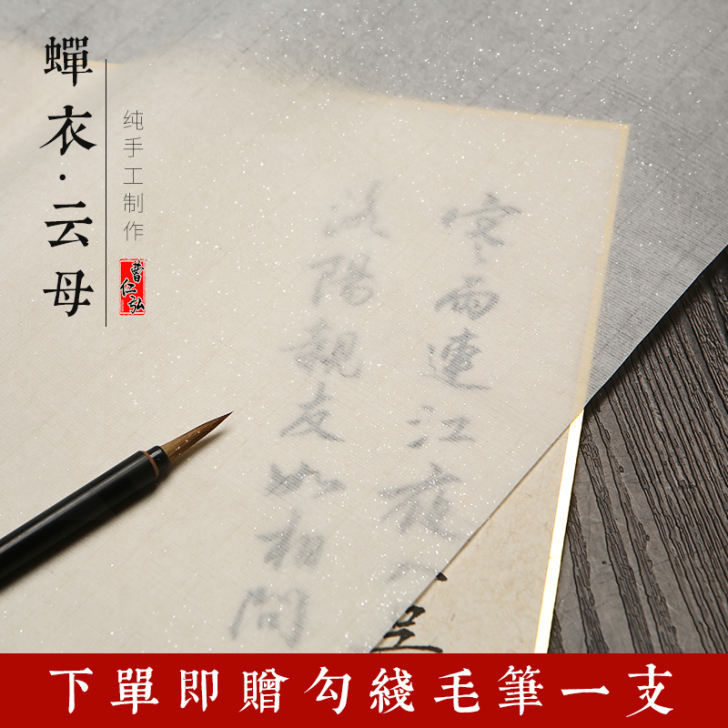 蟬衣·云母
纯手工制作
曹仁弘
寒雨連江夜入吴
洛陽親友如相問
下單即贈勾綫毛筆一支